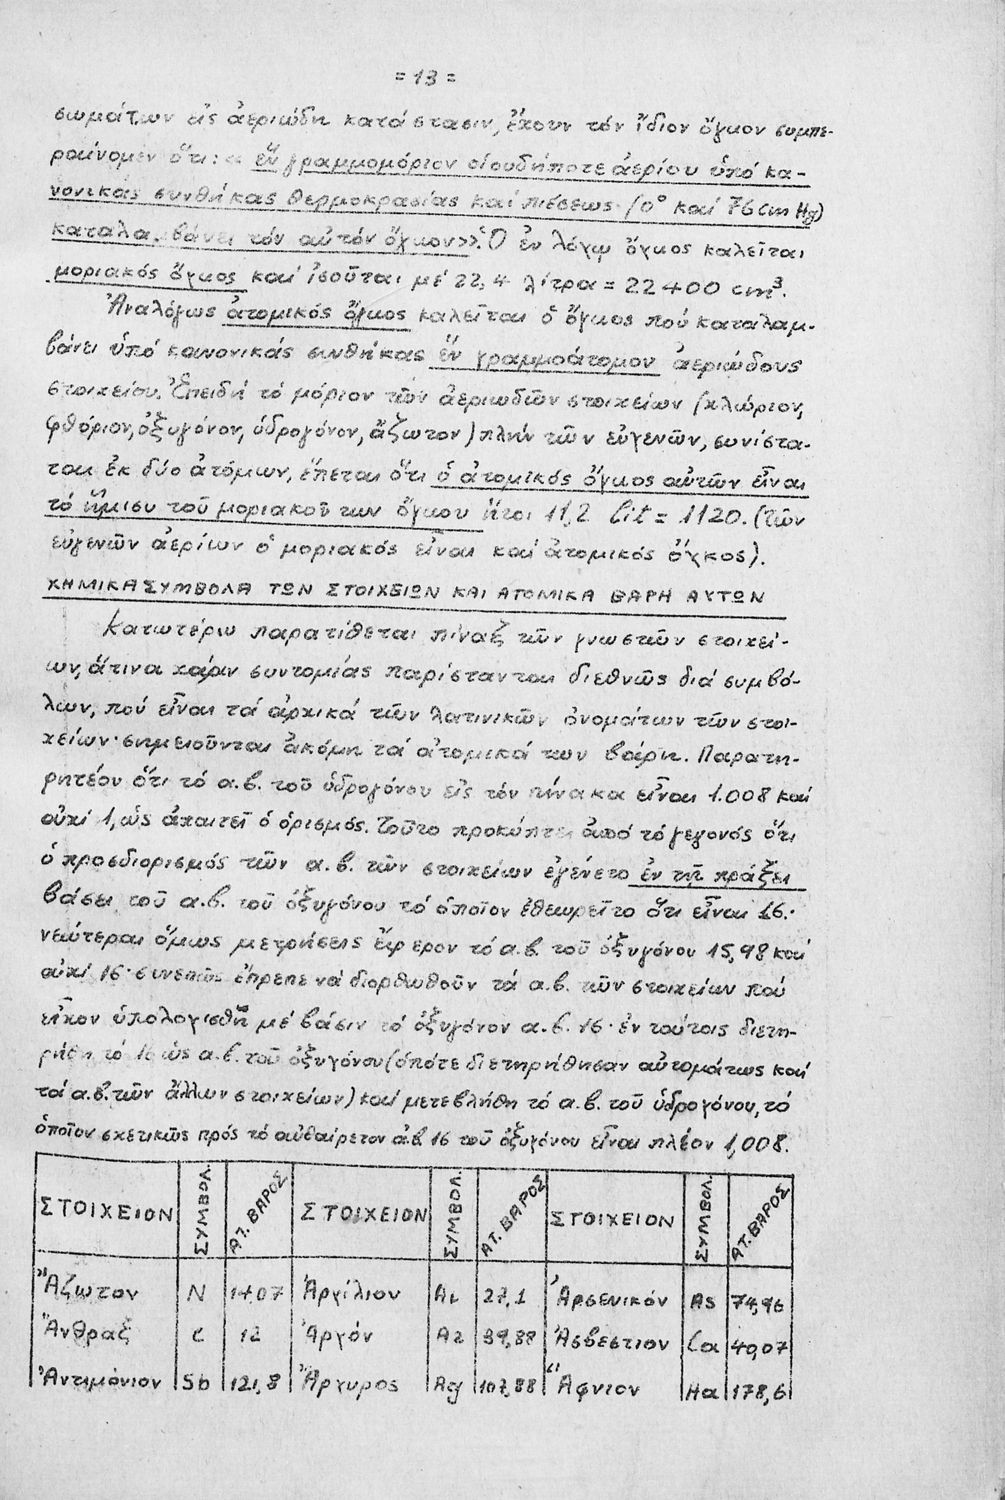 = 13 =
σωμάτων εἰς ἀεριώδη κατάστασιν, ἔχουν τόν ἴδιον ὄγκον συμπε-
ραίνομεν ὅτι: « ἕν γραμμομόριον οἱουδήποτε ἀερίου ὑπό κα-
νονικάς συνθήκας θερμοκρασίας καί πιέσεως (0° καί 76 cm Hg)
καταλαμβάνει τόν αὐτόν ὄγκον». Ὁ ἐν λόγῳ ὄγκος καλεῖται
μοριακός ὄγκος καί ἰσοῦται μέ 22,4 λίτρα = 22400 cm³.
Ἀναλόγως ἀτομικός ὄγκος καλεῖται ὁ ὄγκος πού καταλαμ-
βάνει ὑπό κανονικάς συνθήκας ἕν γραμμοάτομον ἀεριώδους
στοιχείου. Ἐπειδή τό μόριον τῶν ἀεριωδῶν στοιχείων (χλώριον,
φθόριον, ὀξυγόνον, ὑδρογόνον, ἄζωτον) πλήν τῶν εὐγενῶν, συνίστα-
ται ἐκ δύο ἀτόμων, ἕπεται ὅτι ὁ ἀτομικός ὄγκος αὐτῶν εἶναι
τό ἥμισυ τοῦ μοριακοῦ των ὄγκου ἤτοι 11,2 lit = 1120. (τῶν
εὐγενῶν ἀερίων ὁ μοριακός εἶναι καί ἀτομικός ὄγκος).
ΧΗΜΙΚΑ ΣΥΜΒΟΛΑ ΤΩΝ ΣΤΟΙΧΕΙΩΝ ΚΑΙ ΑΤΟΜΙΚΑ ΒΑΡΗ ΑΥΤΩΝ
Κατωτέρω παρατίθεται πίναξ τῶν γνωστῶν στοιχεί-
ων, ἅτινα χάριν συντομίας παρίστανται διεθνῶς διά συμβό-
λων, πού εἶναι τά ἀρχικά τῶν λατινικῶν ὀνομάτων τῶν στοι-
χείων· σημειοῦνται ἀκόμη τά ἀτομικά των βάρη. Παρατη-
ρητέον ὅτι τό α.β. τοῦ ὑδρογόνου εἰς τόν πίνακα εἶναι 1.008 καί
οὐχί 1, ὡς ἀπαιτεῖ ὁ ὁρισμός. Τοῦτο προκύπτει ἀπό τό γεγονός ὅτι
ὁ προσδιορισμός τῶν α.β. τῶν στοιχείων ἐγένετο ἐν τῇ πράξει
βάσει τοῦ α.β. τοῦ ὀξυγόνου τό ὁποῖον ἐθεωρεῖτο ὅτι εἶναι 16·
νεώτεραι ὅμως μετρήσεις ἔφερον τό α.β. τοῦ ὀξυγόνου 15,98 καί
οὐχί 16· συνεπῶς ἔπρεπε νά διορθωθοῦν τά α.β. τῶν στοιχείων πού
εἶχον ὑπολογισθῆ μέ βάσιν τό ὀξυγόνον α.β. 16· ἐν τούτοις διετη-
ρήθη τό 16 ὡς α.β. τοῦ ὀξυγόνου (ὁπότε διετηρήθησαν αὐτομάτως καί
τά α.β. τῶν ἄλλων στοιχείων) καί μετεβλήθη τό α.β. τοῦ ὑδρογόνου, τό
ὁποῖον σχετικῶς πρός τό αὐθαίρετον α.β 16 τοῦ ὀξυγόνου εἶναι πλέον 1,008.
ΣΤΟΙΧΕΙΟΝ ΣΥΜΒΟΛ. ΑΤ. ΒΑΡΟΣ ΣΤΟΙΧΕΙΟΝ ΣΥΜΒΟΛ. ΑΤ. ΒΑΡΟΣ ΣΤΟΙΧΕΙΟΝ ΣΥΜΒΟΛ. ΑΤ. ΒΑΡΟΣ
Ἄζωτον N 14.07 Ἀργίλιον AL 27,1 Ἀρσενικόν As 74,96
Ἄνθραξ C 12 Ἀργόν Ar 39,88 Ἀσβέστιον Ca 40,07
Ἀντιμόνιον Sb 121,8 Ἄργυρος Ag 107,88 Ἅφνιον Ha 178,6